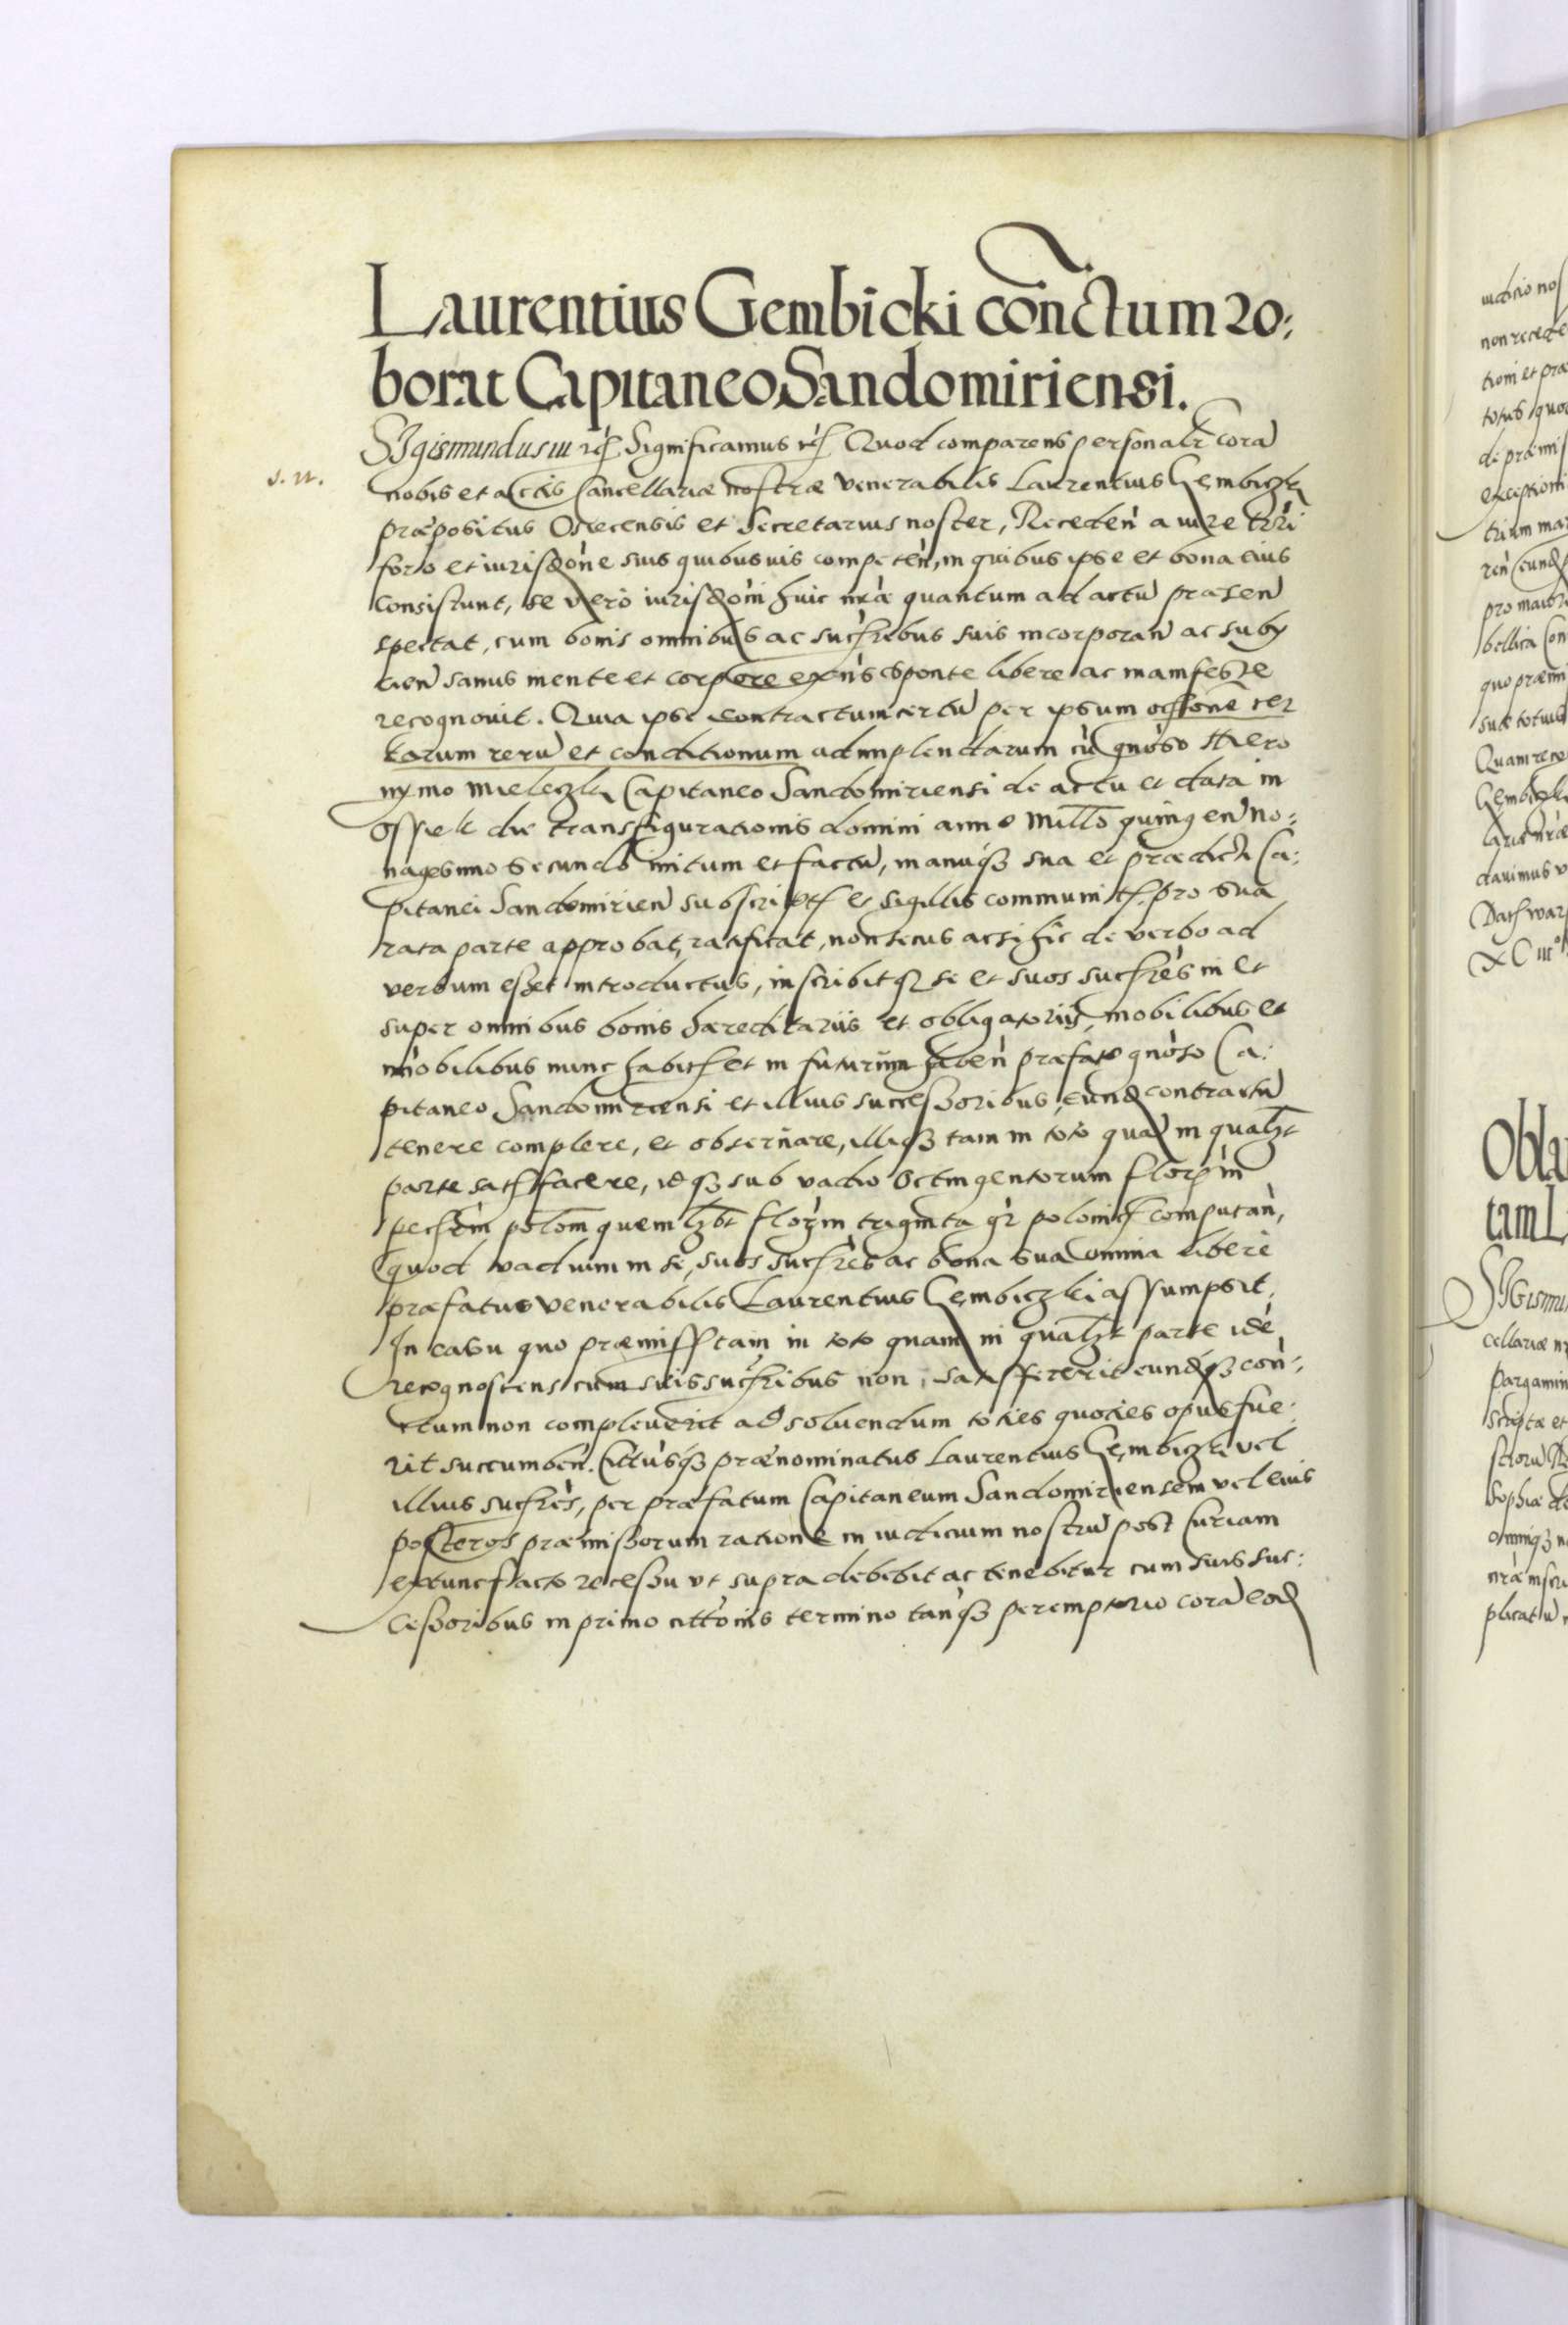 Laurentius Gembicki conctum ro:
borat Capitaneo Sandomiriensi.
Sigismundus III etc. Significamus etc. Quod comparens personalr corā
S. N.
nobis et actis Cancellariæ nostræ venerabilis Laurentius Gembiczki
præpositus et Secretarius noster, Receden a iure trri
foro et iurisdone suis quibusuis competen, in quibus ipse et bona eius
consistunt, se vero iurisdoni huic nræ quantum ad actū præsen
spectat, cum bonis omnibus ac sucribus suis incorporan ac subij
cien sanus mente et corpore exns sponte libere ac manifeste
recognouit. Quia ipse contractum certū per ipsum cer
tarum rerū et conditionum adimplendarum cū gnoso Hiero
nymo Mieleczki Capitaneo Sandomiriensi de actu et data in
Ossiek die transfigurationis domini anno Millo quingen no:
nagesimo secundo initum et factū, manuq3 sua et prædicti Ca:
pitanei Sandomirien subscript et sigillis communit pro sua
rata parte approbat, ratificat, non secus ac si hic de verbo ad
verbum esset introductus, inscribitq3 se et suos sucres in et
super omnibus bonis hæreditariis et obligatoriis, mobilibus et
imobilibus nunc habit et in futurum haben præfato gnoso Ca:
pitaneo Sandomiriensi et illius successoribus, eund contractū
tenere complere, et obseruare, illiq3 tam in toto quā in qualzt
parte satisfacere, idq3 sub vadio Octingentorum flor in
pecn polom quemlzbt flor in triginta gr polonic computan,
quod vadium in se, suos sucres ac bona sua omnia libere
præfatus venerabilis Laurentius Gembiczki assumpsit,
In casu quo præmiss tam in toto quam in qualzt parte idē
recognoscens cum suis sucribus non satisfecerit eundq3 con:
ctum non compleuerit ad soluendum toties quoties opus fue:
rit succumben. Cittusq3 prænominatus Laurentius Gembiczki vel
illius sucres, per præfatum Capitaneum Sandomiriensem vel eius
posteros præmissorum ratione in iudicium nostrū post Curiam
extunc facto recessu vt supra debebit ac tenebitur cum suis suc:
cessoribus in primo cittonis termino tanq3 peremptorio corā eod